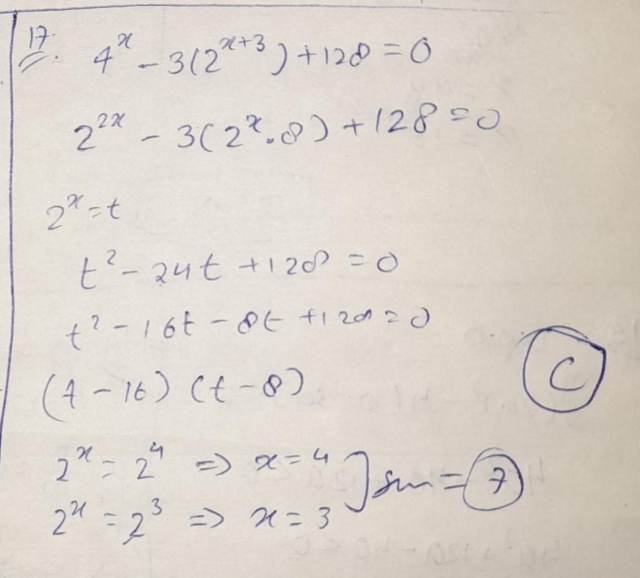 17. 4^x - 3(2^{x+3}) + 128 = 0
2^{2x} - 3(2^x . 8) + 128 = 0
2^x = t
t^2 - 24t + 128 = 0
t^2 - 16t - 8t + 128 = 0
(t - 16) (t - 8)
C
2^x = 2^4 => x = 4
2^x = 2^3 => x = 3
] sum = 7